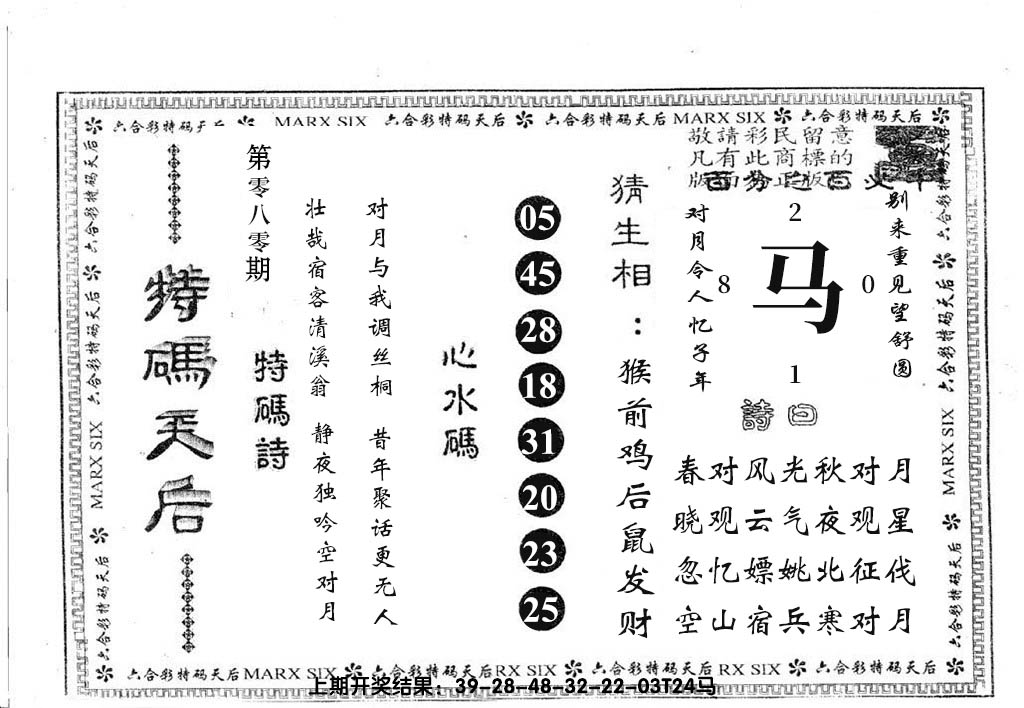 六合彩特码天后 MARX SIX 六合彩特码天后 六合彩特码天后 MARX SIX 六合彩特码天后
敬請彩民留意
凡有此商標的
版面為正版
别来重见望舒圆
2
8 马 0
1
对月令人忆子年
詩曰
春对风光秋对月
晓观云气夜观星
忽忆嫖姚北征伐
空山宿兵寒对月
猜生相：猴前鸡后鼠发财
05
45
28
18
31
20
23
25
心水碼
对月与我调丝桐 昔年聚话更无人
壮哉宿客清溪翁 静夜独吟空对月
第零八零期
特碼詩
特碼天后
六合彩特码天后 MARX SIX 六合彩特码天后
六合彩特码天后 MARX SIX 六合彩特码天后
六合彩特码天后MARX SIX 六合彩特码天后RX SIX 六合彩特码天后 RX SIX 六合彩特码天后
上期开奖结果：39-28-48-32-22-03T24马